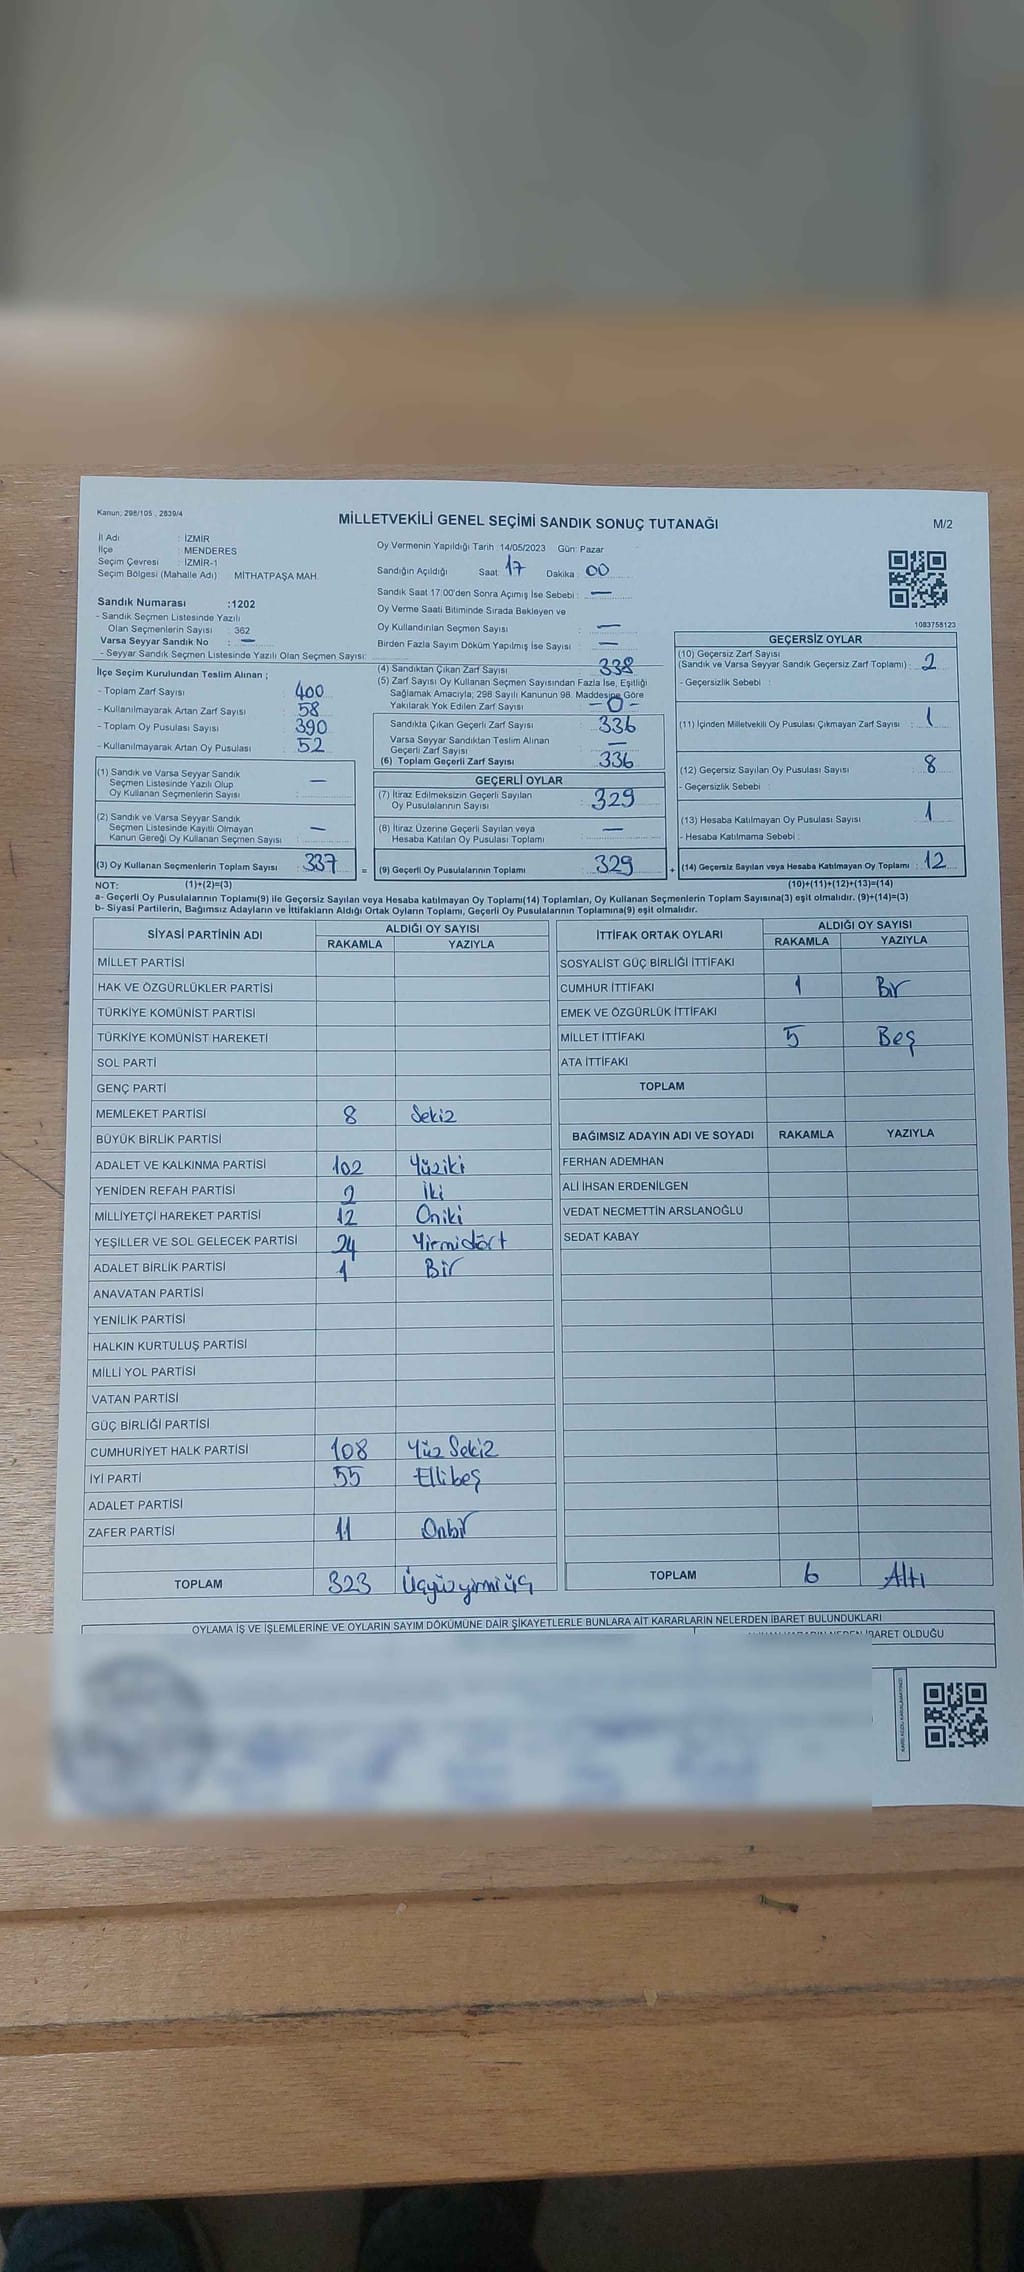 Kanun: 298/105 , 2839/4
MİLLETVEKİLİ GENEL SEÇİMİ SANDIK SONUÇ TUTANAĞI
M/2
İl Adı : İZMİR
İlçe : MENDERES
Seçim Çevresi : İZMİR-1
Seçim Bölgesi (Mahalle Adı) MİTHATPAŞA MAH.
Oy Vermenin Yapıldığı Tarih :14/05/2023 Gün: Pazar
Sandığın Açıldığı Saat: 17 Dakika : 00
Sandık Saat 17:00'den Sonra Açımış İse Sebebi : —
Oy Verme Saati Bitiminde Sırada Bekleyen ve
Oy Kullandırılan Seçmen Sayısı : —
Birden Fazla Sayım Döküm Yapılmış İse Sayısı : —
1083758123
Sandık Numarası :1202
- Sandık Seçmen Listesinde Yazılı
Olan Seçmenlerin Sayısı : 362
Varsa Seyyar Sandık No : —
- Seyyar Sandık Seçmen Listesinde Yazılı Olan Seçmen Sayısı:
İlçe Seçim Kurulundan Teslim Alınan ;
- Toplam Zarf Sayısı : 400
- Kullanılmayarak Artan Zarf Sayısı : 58
- Toplam Oy Pusulası Sayısı : 390
- Kullanılmayarak Artan Oy Pusulası : 52
(1) Sandık ve Varsa Seyyar Sandık
Seçmen Listesinde Yazılı Olup
Oy Kullanan Seçmenlerin Sayısı : —
(2) Sandık ve Varsa Seyyar Sandık
Seçmen Listesinde Kayıtlı Olmayan
Kanun Gereği Oy Kullanan Seçmen Sayısı : —
(3) Oy Kullanan Seçmenlerin Toplam Sayısı : 337
(4) Sandıktan Çıkan Zarf Sayısı : 338
(5) Zarf Sayısı Oy Kullanan Seçmen Sayısından Fazla İse, Eşitliği
Sağlamak Amacıyla; 298 Sayılı Kanunun 98. Maddesine Göre
Yakılarak Yok Edilen Zarf Sayısı : —0—
Sandıkta Çıkan Geçerli Zarf Sayısı : 336
Varsa Seyyar Sandıktan Teslim Alınan
Geçerli Zarf Sayısı : —
(6) Toplam Geçerli Zarf Sayısı : 336
GEÇERLİ OYLAR
(7) İtiraz Edilmeksizin Geçerli Sayılan
Oy Pusulalarının Sayısı : 329
(8) İtiraz Üzerine Geçerli Sayılan veya
Hesaba Katılan Oy Pusulası Toplamı : —
= (9) Geçerli Oy Pusulalarının Toplamı : 329
GEÇERSİZ OYLAR
(10) Geçersiz Zarf Sayısı
(Sandık ve Varsa Seyyar Sandık Geçersiz Zarf Toplamı) : 2
- Geçersizlik Sebebi :
(11) İçinden Milletvekili Oy Pusulası Çıkmayan Zarf Sayısı : 1
(12) Geçersiz Sayılan Oy Pusulası Sayısı : 8
- Geçersizlik Sebebi :
(13) Hesaba Katılmayan Oy Pusulası Sayısı : 1
- Hesaba Katılmama Sebebi :
+ (14) Geçersiz Sayılan veya Hesaba Katılmayan Oy Toplamı : 12
NOT: (1)+(2)=(3) (10)+(11)+(12)+(13)=(14)
a- Geçerli Oy Pusulalarının Toplamı(9) ile Geçersiz Sayılan veya Hesaba katılmayan Oy Toplamı(14) Toplamları, Oy Kullanan Seçmenlerin Toplam Sayısına(3) eşit olmalıdır. (9)+(14)=(3)
b- Siyasi Partilerin, Bağımsız Adayların ve İttifakların Aldığı Ortak Oyların Toplamı, Geçerli Oy Pusulalarının Toplamına(9) eşit olmalıdır.
SİYASİ PARTİNİN ADI ALDIĞI OY SAYISI
RAKAMLA YAZIYLA
MİLLET PARTİSİ
HAK VE ÖZGÜRLÜKLER PARTİSİ
TÜRKİYE KOMÜNİST PARTİSİ
TÜRKİYE KOMÜNİST HAREKETİ
SOL PARTİ
GENÇ PARTİ
MEMLEKET PARTİSİ 8 Sekiz
BÜYÜK BİRLİK PARTİSİ
ADALET VE KALKINMA PARTİSİ 102 Yüziki
YENİDEN REFAH PARTİSİ 2 İki
MİLLİYETÇİ HAREKET PARTİSİ 12 Oniki
YEŞİLLER VE SOL GELECEK PARTİSİ 24 Yirmidört
ADALET BİRLİK PARTİSİ 1 Bir
ANAVATAN PARTİSİ
YENİLİK PARTİSİ
HALKIN KURTULUŞ PARTİSİ
MİLLİ YOL PARTİSİ
VATAN PARTİSİ
GÜÇ BİRLİĞİ PARTİSİ
CUMHURİYET HALK PARTİSİ 108 Yüz Sekiz
İYİ PARTİ 55 Ellibeş
ADALET PARTİSİ
ZAFER PARTİSİ 11 Onbir
TOPLAM 323 Üçyüzyirmiüç
İTTİFAK ORTAK OYLARI ALDIĞI OY SAYISI
RAKAMLA YAZIYLA
SOSYALİST GÜÇ BİRLİĞİ İTTİFAKI
CUMHUR İTTİFAKI 1 Bir
EMEK VE ÖZGÜRLÜK İTTİFAKI
MİLLET İTTİFAKI 5 Beş
ATA İTTİFAKI
TOPLAM
BAĞIMSIZ ADAYIN ADI VE SOYADI RAKAMLA YAZIYLA
FERHAN ADEMHAN
ALİ İHSAN ERDENİLGEN
VEDAT NECMETTİN ARSLANOĞLU
SEDAT KABAY
TOPLAM 6 Altı
OYLAMA İŞ VE İŞLEMLERİNE VE OYLARIN SAYIM DÖKÜMÜNE DAİR ŞİKAYETLERLE BUNLARA AİT KARARLARIN NELERDEN İBARET BULUNDUKLARI
OLDUĞU